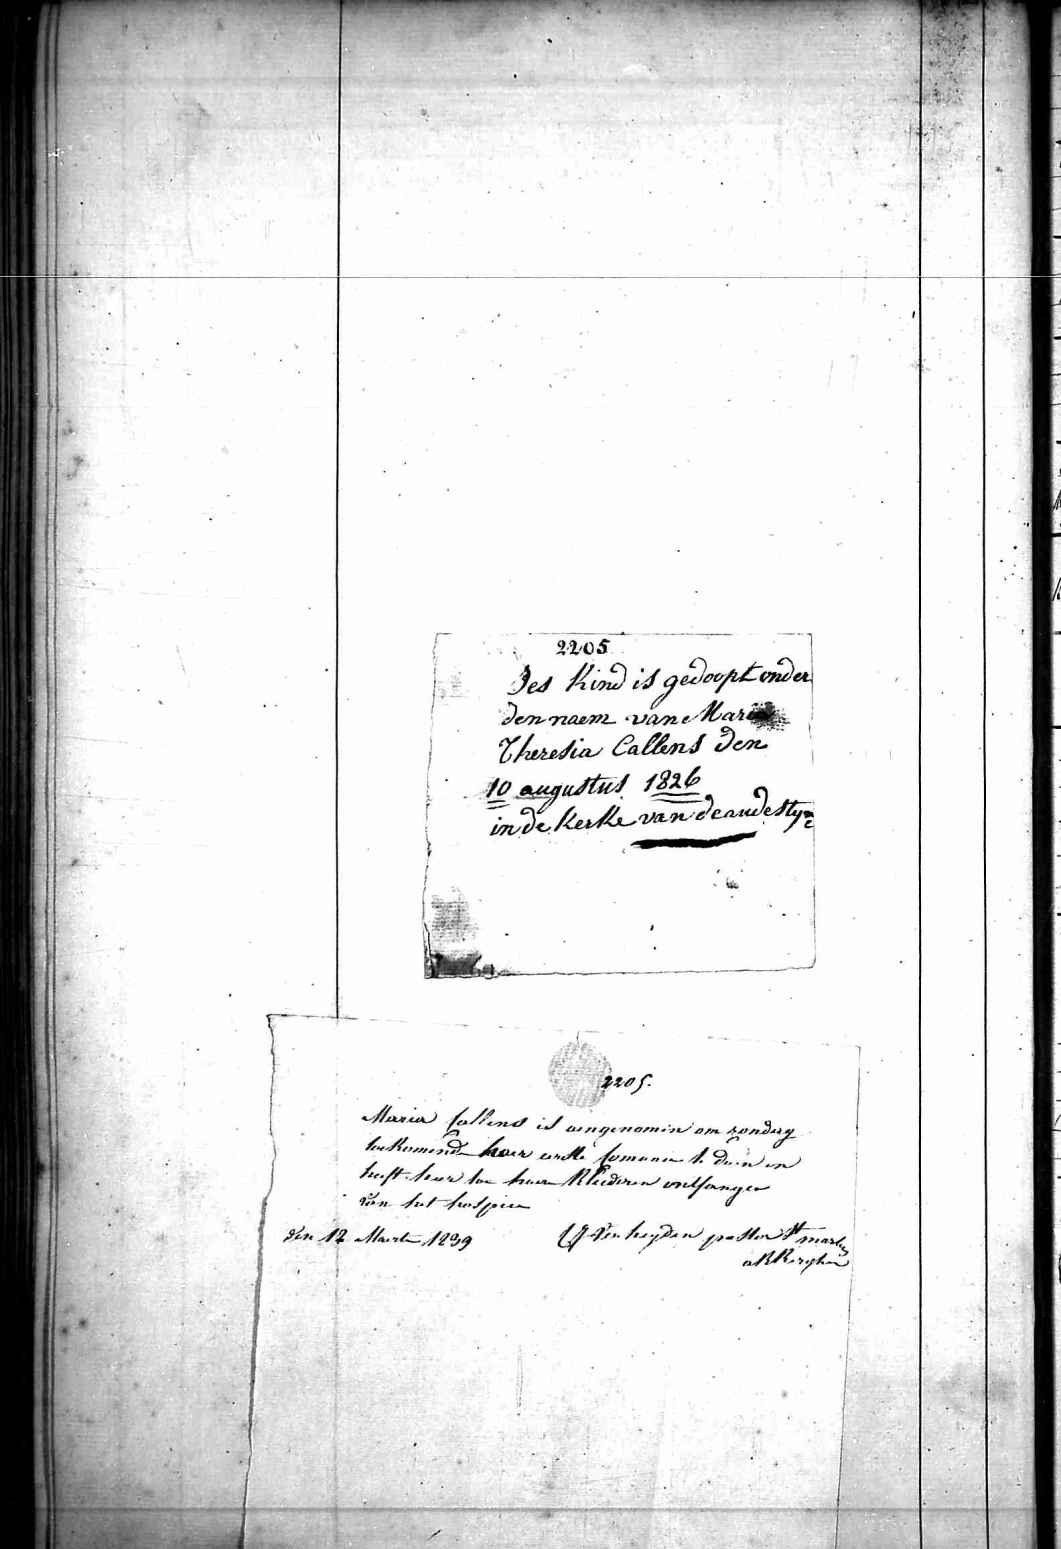 2205
Des Kind is gedoopt onder
den naem van Maria
Theresia Callens den
10 augustus 1826
in de kerke van de
2205.
Maria Callens is aengenomen om zondag
toekomende haer eerste Comunie te doen en
heeft haer toe haer Kleederen ontfangen
van het hospice
den 12 Maerte 1839
pastor St